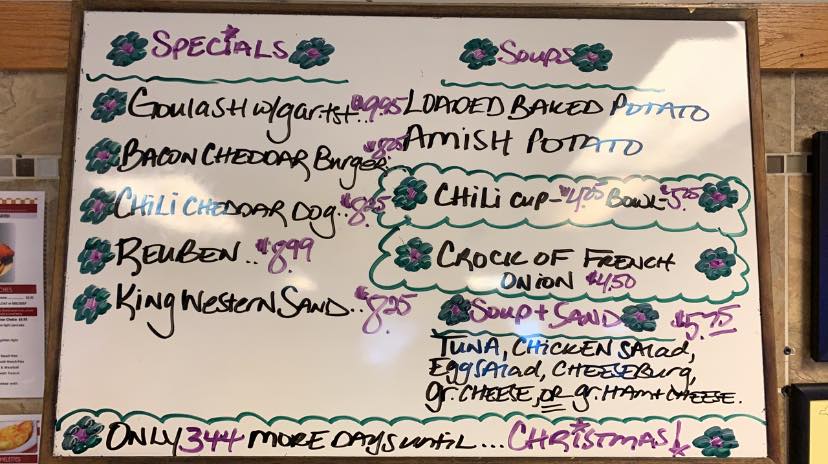 Specials
Goulash w/gar.tst..$9.95
Bacon Cheddar Burger
Chili Cheddar Dog..$8.25
Reuben..$8.99
King Western Sand..$8.25
Soups
Loaded Baked Potato
Amish Potato
Chili cup-$4.25 Bowl-$5.25
Crock of French
Onion $4.50
Soup + Sand $5.75
Tuna, Chicken Salad,
Egg Salad, Cheeseburg,
gr. Cheese, or gr. Ham + Cheese.
Only 344 more days until... Christmas!